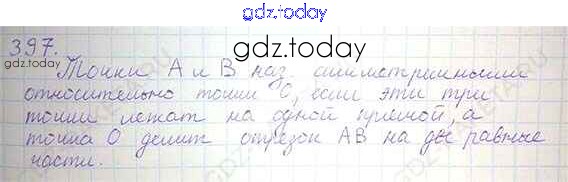 gdz.today
397.
gdz.today
gdz.today
Точки А и В наз. симметричными
относительно точки О, если эти три
точки лежат на одной прямой, а
точка О делит отрезок АВ на две равные
части.
gdz.today